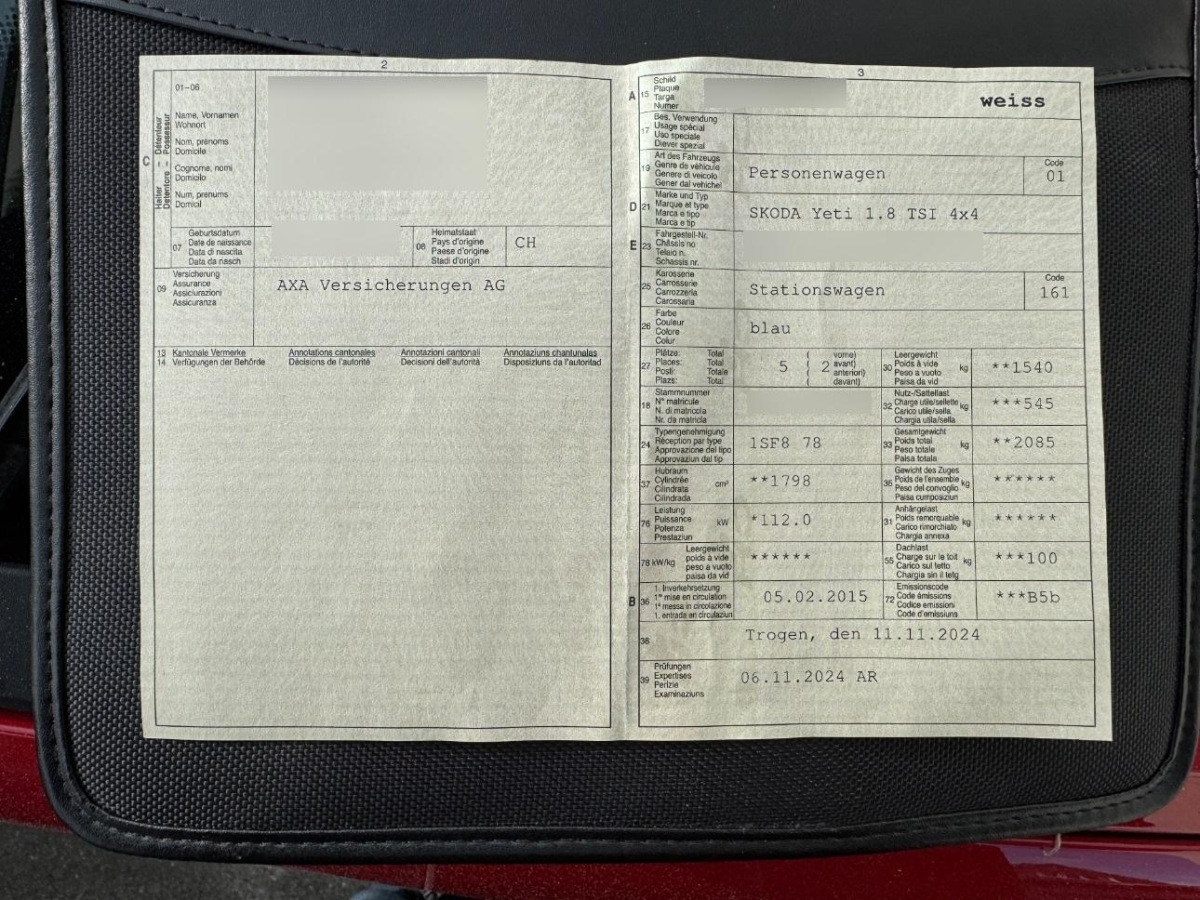 2
01-06
C
Halter – Détenteur
Detentore – Possessur
Name, Vornamen
Wohnort
Nom, prénoms
Domicile
Cognome, nomi
Domicilio
Num, prenums
Domicil
07
Geburtsdatum
Date de naissance
Data di nascita
Data da nasch
08
Heimatstaat
Pays d'origine
Paese d'origine
Stadi d'origin
CH
09
Versicherung
Assurance
Assicurazioni
Assicuranza
AXA Versicherungen AG
13 Kantonale Vermerke Annotations cantonales Annotazioni cantonali Annotaziuns chantunalas
14 Verfügungen der Behörde Décisions de l'autorité Decisioni dell'autorità Disposiziuns da l'autoritad
3
A 15
Schild
Plaque
Targa
Numer
weiss
17
Bes. Verwendung
Usage spécial
Uso speciale
Diever spezial
19
Art des Fahrzeugs
Genre de véhicule
Genere di veicolo
Gener dal vehichel
Personenwagen
Code
01
D 21
Marke und Typ
Marque et type
Marca e tipo
Marca e tip
SKODA Yeti 1.8 TSI 4x4
E 23
Fahrgestell-Nr.
Châssis no
Telaio n.
Schassis nr.
25
Karosserie
Carrosserie
Carrozzeria
Carossaria
Stationswagen
Code
161
26
Farbe
Couleur
Colore
Colur
blau
27
Plätze: Total
Places: Total
Posti: Totale
Plazs: Total
5 ( 2 vorne)
( avant)
( anteriori)
( davant)
30
Leergewicht
Poids à vide
Peso a vuoto
Paisa da vid
kg
**1540
18
Stammnummer
N° matricule
N. di matricola
Nr. da matricla
32
Nutz-/Sattellast
Charge utile/sellette
Carico utile/sella
Chargia utila/sella
kg
***545
24
Typengenehmigung
Réception par type
Approvazione del tipo
Approvaziun dal tip
1SF8 78
33
Gesamtgewicht
Poids total
Peso totale
Paisa totala
kg
**2085
37
Hubraum
Cylindrée
Cilindrata
Cilindrada
cm³
**1798
35
Gewicht des Zuges
Poids de l'ensemble
Peso del convoglio
Paisa cumposiziun
kg
******
76
Leistung
Puissance
Potenza
Prestaziun
kW
*112.0
31
Anhängelast
Poids remorquable
Carico rimorchiato
Chargia annexa
kg
******
78 kW/kg
Leergewicht
poids à vide
peso a vuoto
paisa da vid
******
55
Dachlast
Charge sur le toit
Carico sul tetto
Chargia sin il tetg
kg
***100
B 36
1. Inverkehrsetzung
1re mise en circulation
1a messa in circolazione
1. entrada en circulaziun
05.02.2015
72
Emissionscode
Code émissions
Codice emissioni
Code d'emissiuns
***B5b
38
Trogen, den 11.11.2024
39
Prüfungen
Expertises
Perizie
Examinaziuns
06.11.2024 AR